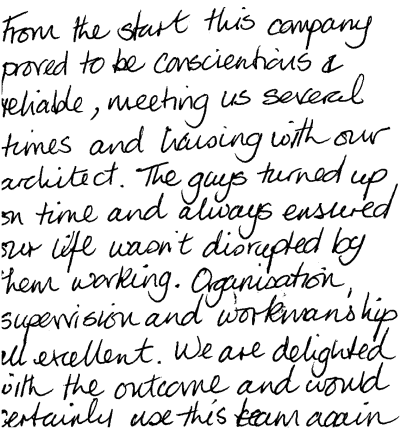 From the start this company
proved to be conscientious &
reliable, meeting us several
times and liaising with our
architect. The guys turned up
on time and always ensured
our life wasn't disrupted by
them working. Organisation,
supervision and workmanship
all excellent. We are delighted
with the outcome and would
certainly use this team again